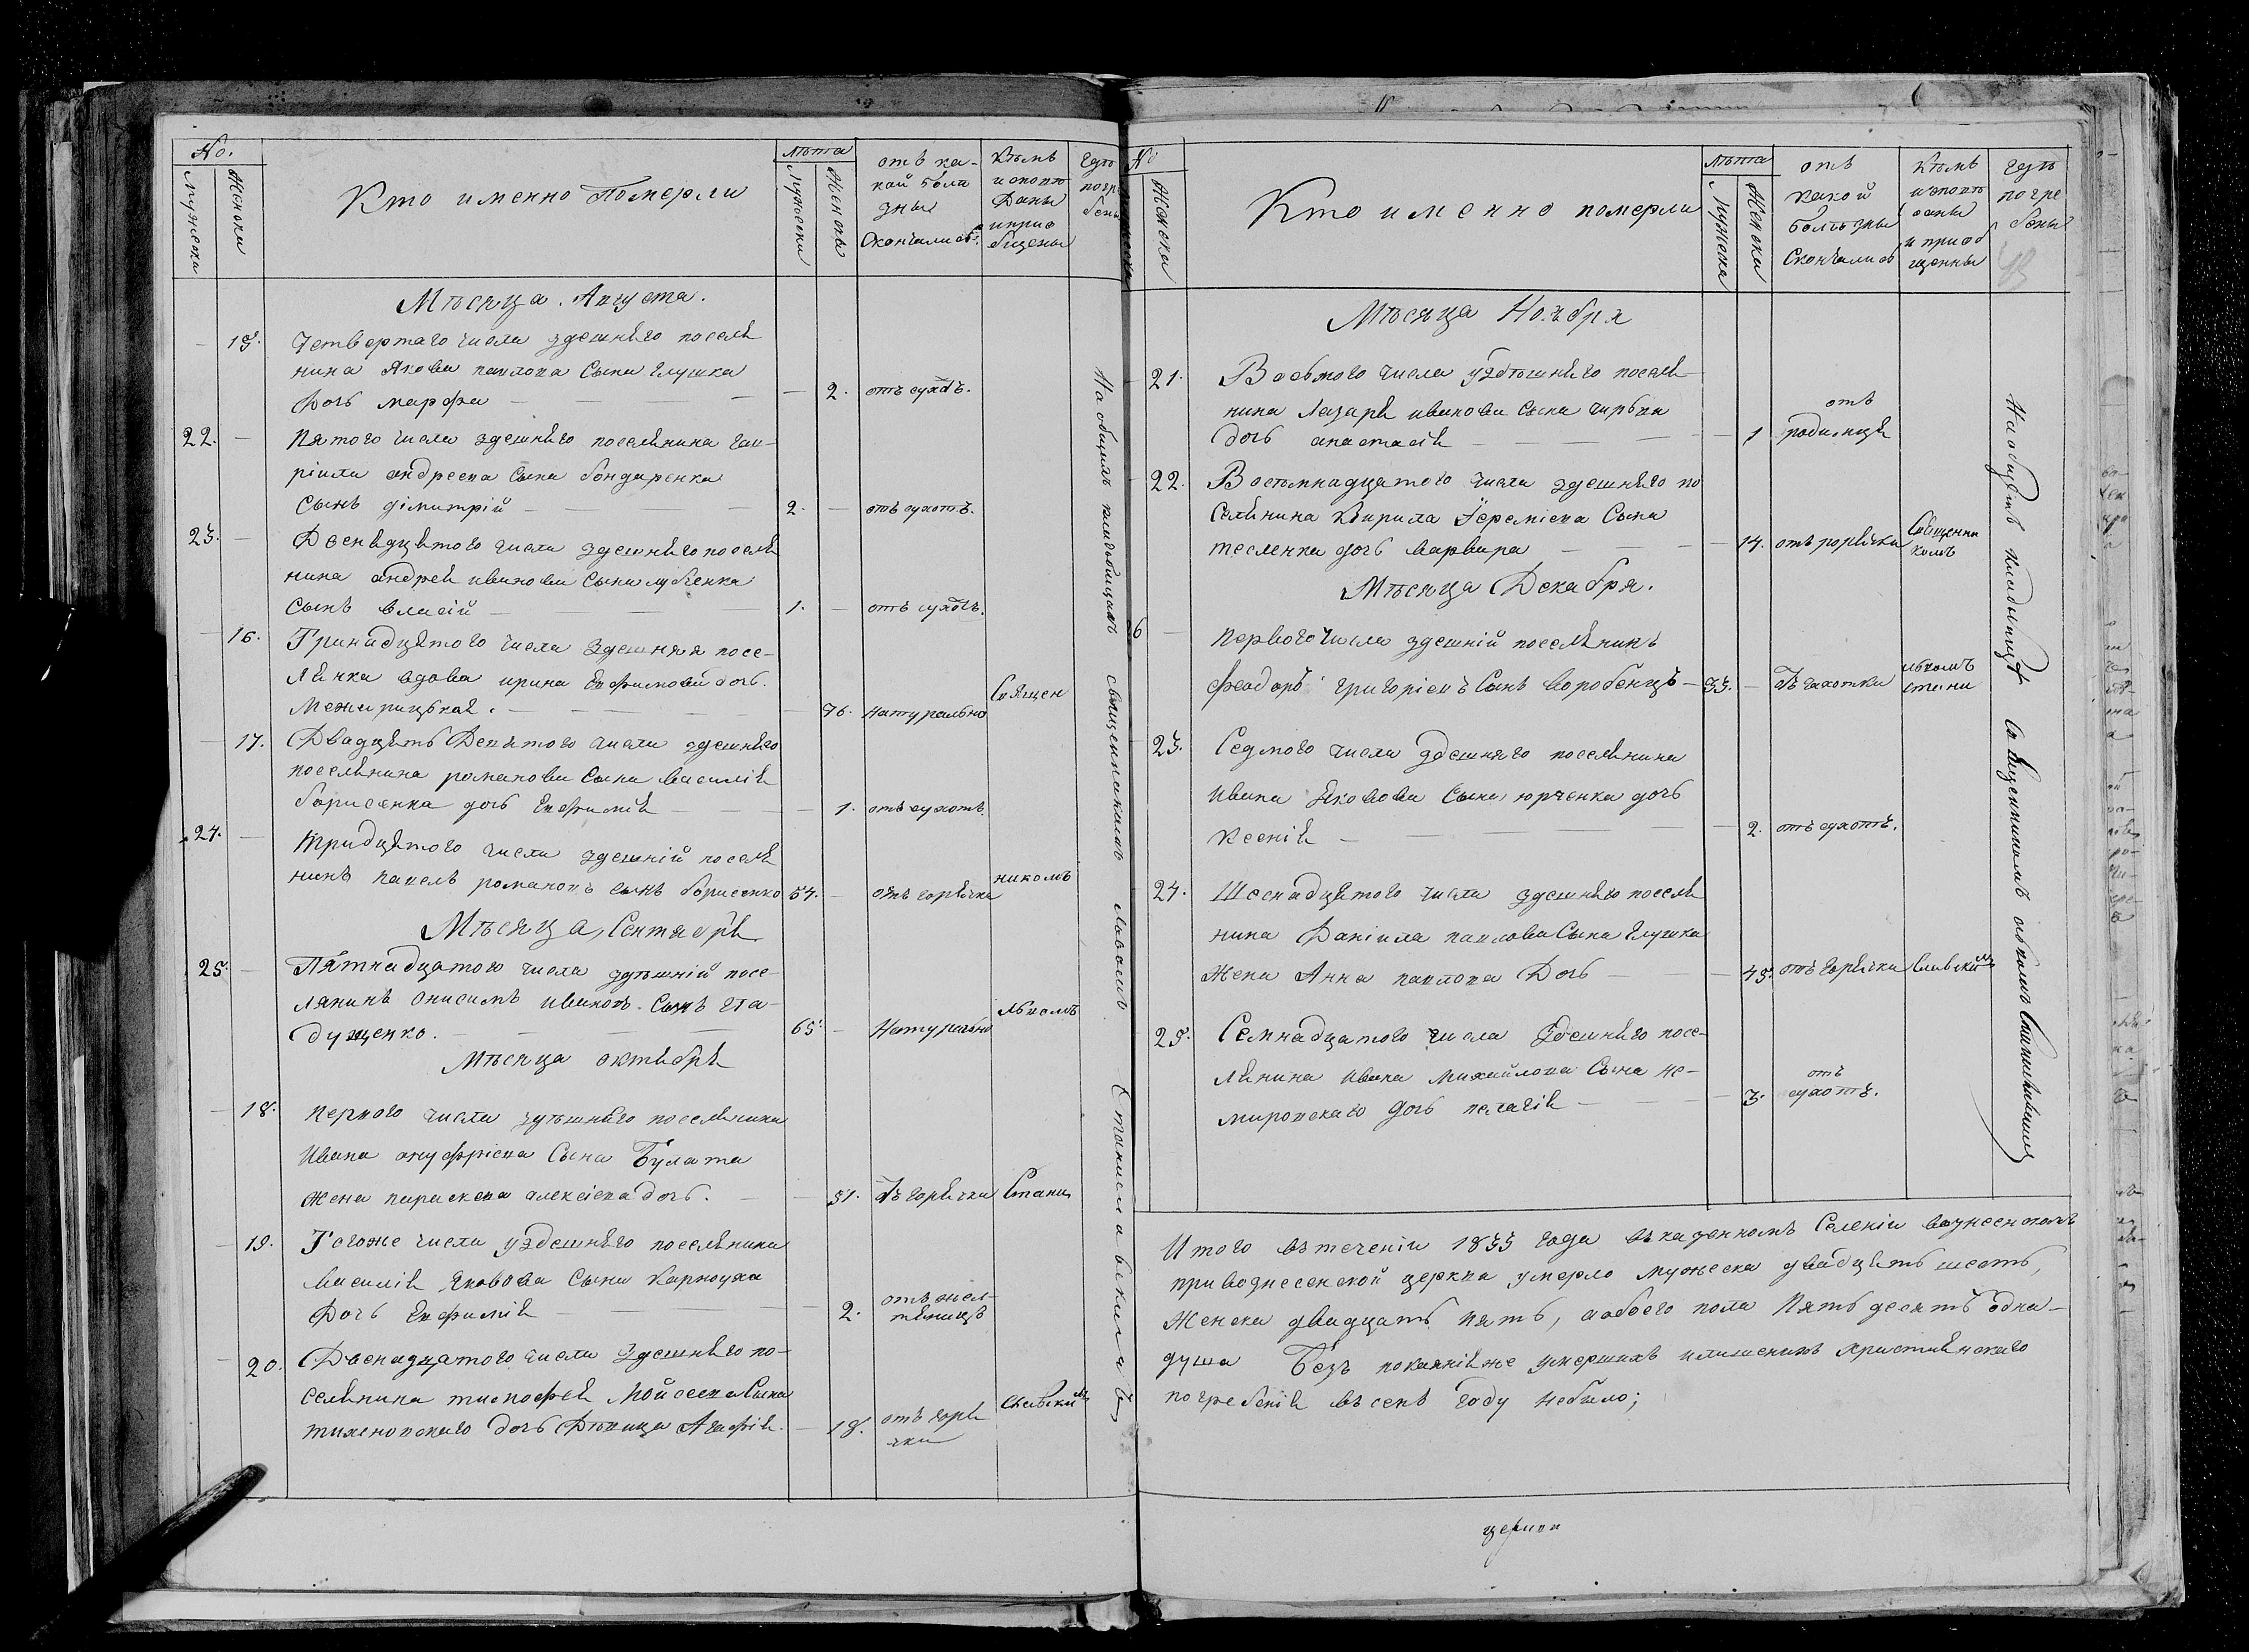 No.
Мужеска
Женска
Кто именно Померли
лѣта
Мужеска
Женска
отъ ка-
кой болѣ
зны
Скончались
Кѣмъ
исповѣ
Даны
и прио
бщены
Гдѣ
погре
бены
Мѣсяца Августа.
15. Четвертаго числа здешняго поселя
нина Якова павлова Сына Глушка
Дочь марфа — 2. отъ сухотъ.
22. Пятого числа здешняго поселянина гав-
ріила андреева Сына бондаренка
Сынъ димитрій — 2. — отъ сухотъ.
23. Двенадцятого числа здешняго поселя
нина андрея иванова Сына
Сынъ власій — 1. — отъ сухотъ.
16. Тринадцятого числа здешняя посе-
лянка вдова ирина Евфимова дочь.
Межирицькая. — 76. натурально Священ
17. Двадцять Девятого числа здешняго
поселянина романова Сына василія
борисенка дочь Евфимія — 1. отъ сухотъ.
24. тридцятого числа здешній поселя
нинъ павелъ романовъ сынъ борисенко 54. — отъ горячки никомъ
Мѣсяца, Сентября
25. Пятнадцатого числа здѣшній посе-
лянинъ Онисимъ ивановъ Сынъ гла-
дущенко. — 65. — Натурально львомъ
Мѣсяца октября
18. первого числа здѣшняго поселянина
Ивана онуфріева Сына Булата
жена параскева алексіева дочь. — 51. отъ горячки Стани
19. Тогоже числа уздешняго поселянина
василія Яковова Сына Карноуха
Дочь Евфимія — 2. отъ жел-
тяницъ
20. Двенадцатого числа здешняго по-
селянина тимофея Мойсеева Сына
тихоновскаго дочь Дѣвица Агафія. — 18. отъ горя
чки
славскимъ
На общемъ кладбищахъ священникомъ львомъ Станиславскимъ
№
Женска
Кто именно померли
лѣта
Мужеска
Женска
отъ
какой
болѣзны
Скончались
Кѣмъ
исповѣ
даны
и приоб
щенны
Гдѣ
погре
бены
Мѣсяца Ноября
21. Восьмого числа уздѣшняго поселя
нина Лазаря иванова Сына
дочь анастасія — 1 отъ
родимця
22. Восемнадцятого числа здешняго по
Селянина Кирила Іереміева Сына
тесленка дочь варвара — 14. отъ горячки Священни
комъ
Мѣсяца Декабря.
6 — первого числа здешній поселянинъ
феодоръ григоріевъ Сынъ воробецъ — 33. — отъ чахотки львомъ
стани
23. Седмого числа здешняго поселянина
Ивана Яковова Сына юрченка дочь
Ксенія — 2. отъ сухотъ.
24. Шеснадцятого числа здешняго поселя
нина Даніила павлова Сына Глушка
жена Анна павлова Дочь — 45. отъ горячки славскимъ
25. Семнадцатого числа Здешняго посе-
лянина Ивана Михайлова Сына не-
мировскаго дочь пелагія — 3. отъ
сухотъ.
На общемъ кладбищѣ Священникомъ львомъ Станиславскимъ
Итого въ теченіи 1833 года въ казенномъ Селеніи вознесенскомъ
при вознесенской церква умерло мужеска двадцять шесть,
Женска двадцать пять, а обоего пола Пятьдесятъ одна-
душа Безъ покаяніяже умершихъ и лишенихъ христіянского
погребенія въ семъ году небыло;
церков